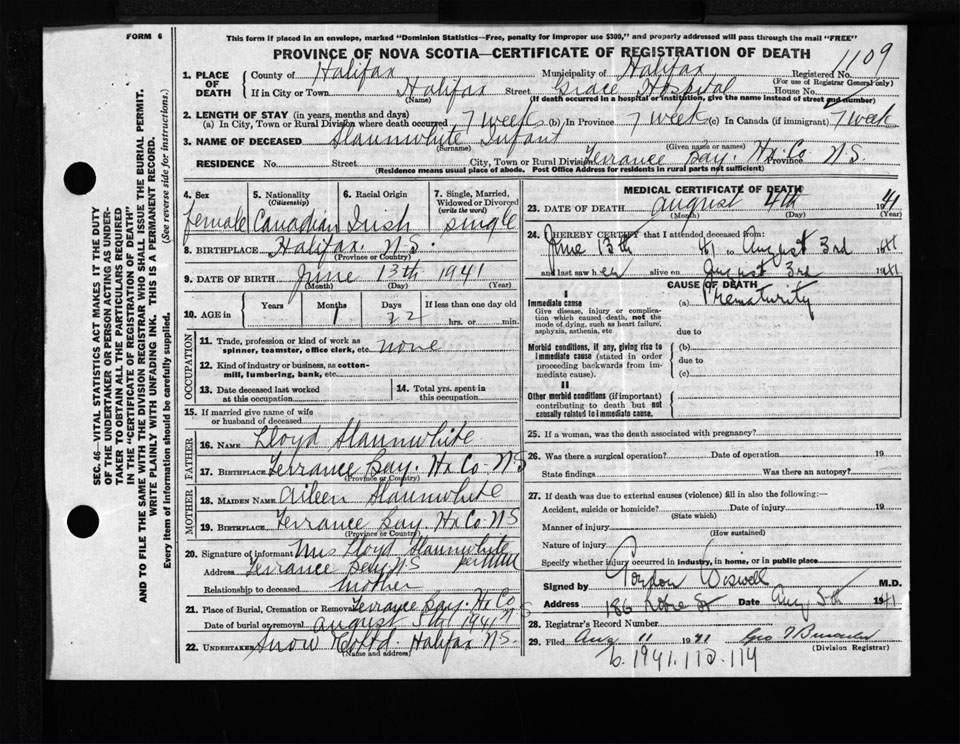 FORM 6
This form if placed in an envelope, marked "Dominion Statistics—Free, penalty for improper use $300," and properly addressed will pass through the mail "FREE"
PROVINCE OF NOVA SCOTIA—CERTIFICATE OF REGISTRATION OF DEATH
1109
SEC. 46—VITAL STATISTICS ACT MAKES IT THE DUTY
OF THE UNDERTAKER OR PERSON ACTING AS UNDER-
TAKER TO OBTAIN ALL THE PARTICULARS REQUIRED
IN THE "CERTIFICATE OF REGISTRATION OF DEATH"
AND TO FILE THE SAME WITH THE DIVISION REGISTRAR WHO SHALL ISSUE THE BURIAL PERMIT.
WRITE PLAINLY WITH UNFADING INK. THIS IS A PERMANENT RECORD.
Every item of information should be carefully supplied. (See reverse side for instructions.)
1. PLACE OF DEATH
County of Halifax Municipality of Halifax Registered No.
(For use of Registrar General only)
If in City or Town Halifax Street Grace Hospital House No.
(Name) (If death occurred in a hospital or institution, give the name instead of street and number)
2. LENGTH OF STAY (in years, months and days)
(a) In City, Town or Rural Division where death occurred 7 weeks (b) In Province 7 week (c) In Canada (if immigrant) 7 week
3. NAME OF DECEASED Slaunwhite Infant
(Surname) (Given name or names)
RESIDENCE No. Street City, Town or Rural Division Terrance Bay. Hx. Co. Province N.S.
(Residence means usual place of abode. Post Office Address for residents in rural parts not sufficient)
4. Sex female
5. Nationality (Citizenship) Canadian
6. Racial Origin Irish
7. Single, Married, Widowed or Divorced (write the word) single
8. BIRTHPLACE Halifax. N.S.
(Province or Country)
9. DATE OF BIRTH June 13th 1941
(Month) (Day) (Year)
10. AGE in Years Months 1 Days 22 If less than one day old hrs. or min.
OCCUPATION
11. Trade, profession or kind of work as spinner, teamster, office clerk, etc. none
12. Kind of industry or business, as cotton-mill, lumbering, bank, etc.
13. Date deceased last worked at this occupation
14. Total yrs. spent in this occupation
15. If married give name of wife or husband of deceased
FATHER
16. NAME Lloyd Slaunwhite
17. BIRTHPLACE Terrance Bay. Hx Co. N.S
(Province or Country)
MOTHER
18. MAIDEN NAME Aileen Slaunwhite
19. BIRTHPLACE Terrance Bay. Hx Co. N.S
(Province or Country)
20. Signature of informant Mrs Lloyd Slaunwhite
Address Terrance Bay NS
Relationship to deceased mother
21. Place of Burial, Cremation or Removal Terrance Bay. Hx Co NS
Date of burial or removal august 5th 1941
22. UNDERTAKER Snow Co Ltd. Halifax N.S.
(Name and address)
MEDICAL CERTIFICATE OF DEATH
23. DATE OF DEATH august 4th 1941
(Month) (Day) (Year)
24. I HEREBY CERTIFY that I attended deceased from:
June 13th 41 to August 3rd 1941
and last saw her alive on August 3rd 1941
CAUSE OF DEATH
I
Immediate cause (a) Prematurity
Give disease, injury or complication which caused death, not the mode of dying, such as heart failure, asphyxia, asthenia, etc.
due to
Morbid conditions, if any, giving rise to immediate cause (stated in order proceeding backwards from immediate cause). (b)
due to
(c)
II
Other morbid conditions (if important) contributing to death but not causally related to immediate cause.
25. If a woman, was the death associated with pregnancy?
26. Was there a surgical operation? Date of operation 19
State findings Was there an autopsy?
27. If death was due to external causes (violence) fill in also the following:—
Accident, suicide or homicide? Date of injury 19
(State which)
Manner of injury
(How sustained)
Nature of injury
Specify whether injury occurred in industry, in home, or in public place
Signed by Gordon Wiswell M.D.
Address 186 St Date Aug 5th 1941
28. Registrar's Record Number
29. Filed Aug 11 1941
(Division Registrar)
b. 1941.112.114